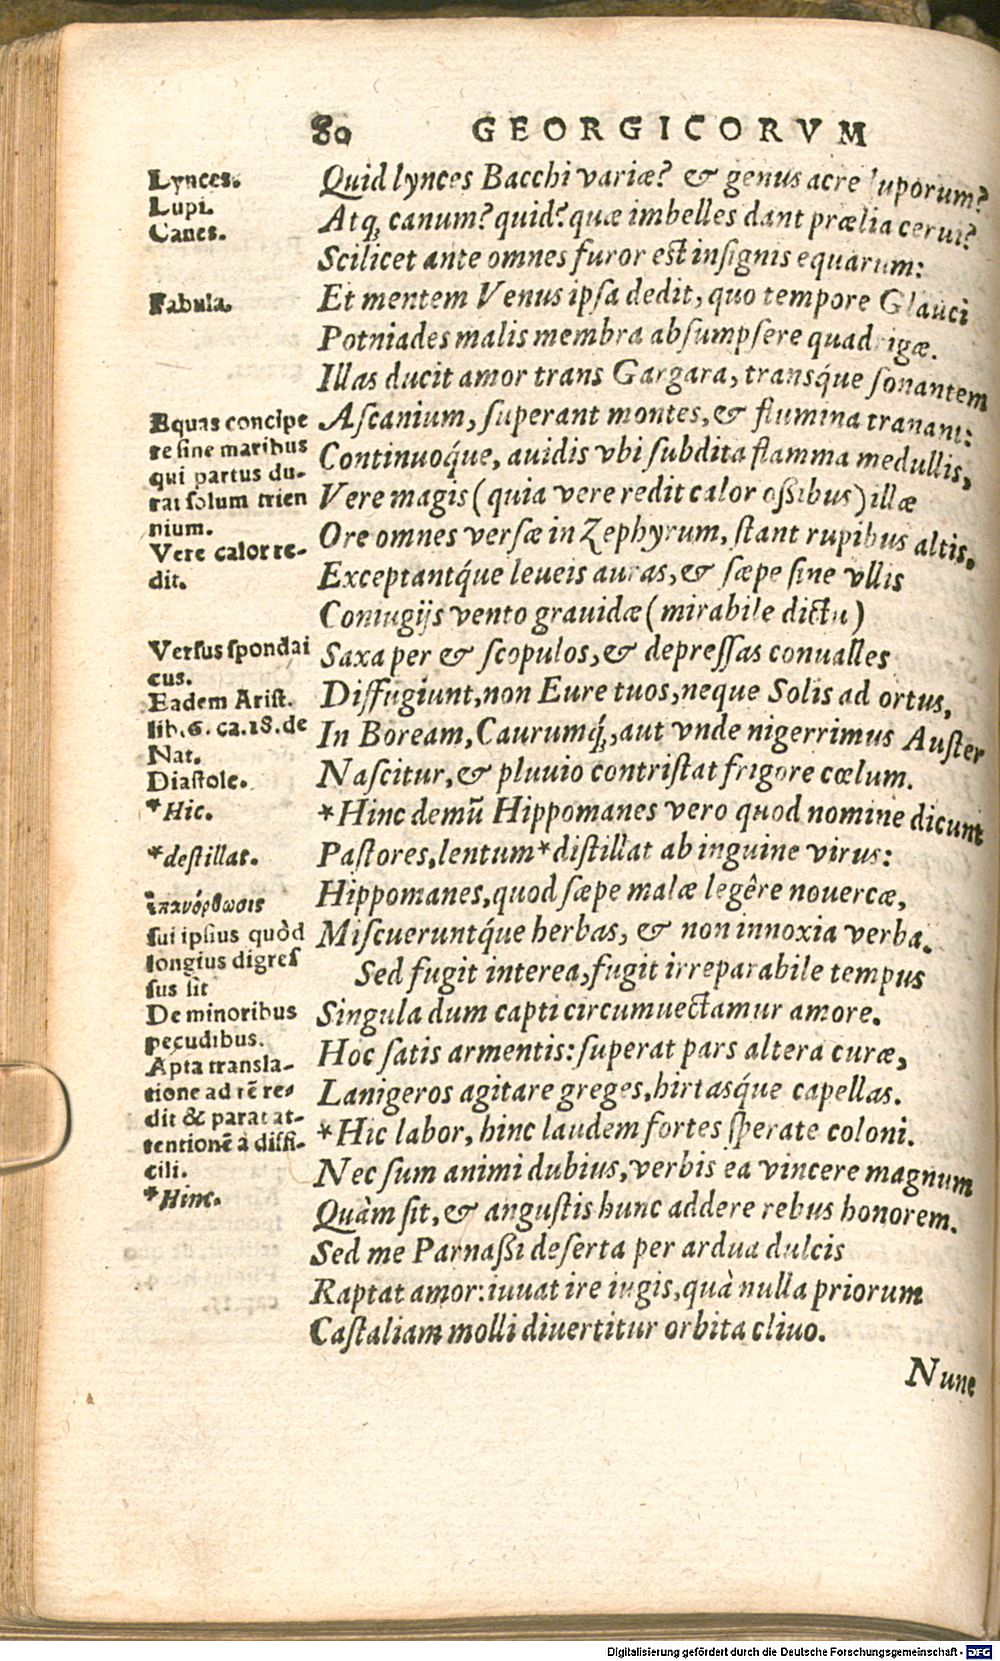 80 GEORGICORVM
Lynces.
Lupi.
Canes.
Fabula.
Equas concipe
re sine maribus
qui partus du-
rat solum trien
nium.
Vere calor re-
dit.
Versus spondai
cus.
Eadem Arist.
lib. 6. ca. 18. de
Nat.
Diastole.
*Hic.
*destillat.
ἐπανόρθωσις
sui ipsius quòd
longius digres
sus sit
De minoribus
pecudibus.
Apta transla-
tione ad rē re-
dit & parat at-
tentionē à diffi-
cili.
*Hinc.
Quid lynces Bacchi variæ? & genus acre luporum?
Atq; canum? quid? quæ imbelles dant prælia cerui?
Scilicet ante omnes furor est insignis equarum:
Et mentem Venus ipsa dedit, quo tempore Glauci
Potniades malis membra absumpsere quadrigæ.
Illas ducit amor trans Gargara, transq́ue sonantem
Ascanium, superant montes, & flumina tranant:
Continuoq́ue, auidis vbi subdita flamma medullis,
Vere magis (quia vere redit calor ossibus) illæ
Ore omnes versæ in Zephyrum, stant rupibus altis,
Exceptantq́ue leueis auras, & sæpe sine vllis
Coniugijs vento grauidæ (mirabile dictu)
Saxa per & scopulos, & depressas conualles
Diffugiunt, non Eure tuos, neque Solis ad ortus,
In Boream, Caurumq́;, aut vnde nigerrimus Auster
Nascitur, & pluuio contristat frigore cœlum.
*Hinc demū Hippomanes vero quod nomine dicunt
Pastores, lentum *distillat ab inguine virus:
Hippomanes, quod sæpe malæ legêre nouercæ,
Miscueruntq́ue herbas, & non innoxia verba.
Sed fugit interea, fugit irreparabile tempus
Singula dum capti circumuectamur amore.
Hoc satis armentis: superat pars altera curæ,
Lanigeros agitare greges, hirtasq́ue capellas.
*Hic labor, hinc laudem fortes sperate coloni.
Nec sum animi dubius, verbis ea vincere magnum
Quàm sit, & angustis hunc addere rebus honorem.
Sed me Parnassi deserta per ardua dulcis
Raptat amor: iuuat ire iugis, quà nulla priorum
Castaliam molli diuertitur orbita cliuo.
Nunc
Digitalisierung gefördert durch die Deutsche Forschungsgemeinschaft - DFG